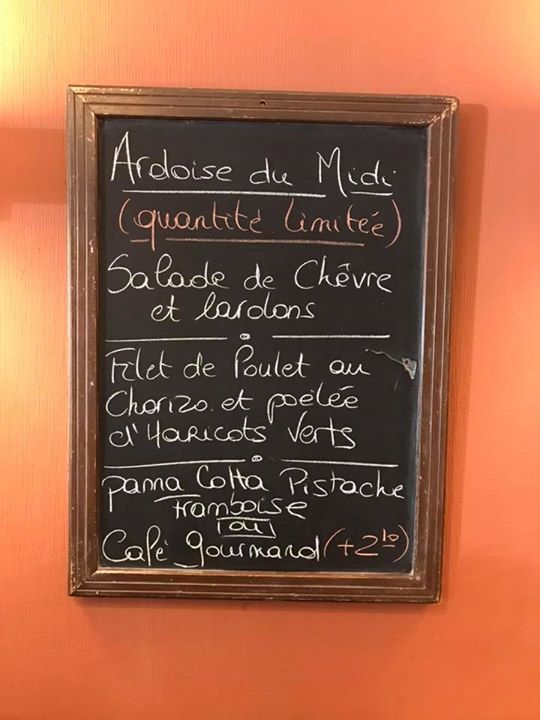 Ardoise du Midi
(quantité limitée)
Salade de Chêvre
et lardons
Filet de Poulet au
Chorizo et poêlée
d'Haricots Verts
panna Cotta Pistache
Framboise
ou
Café gourmand (+2 10)